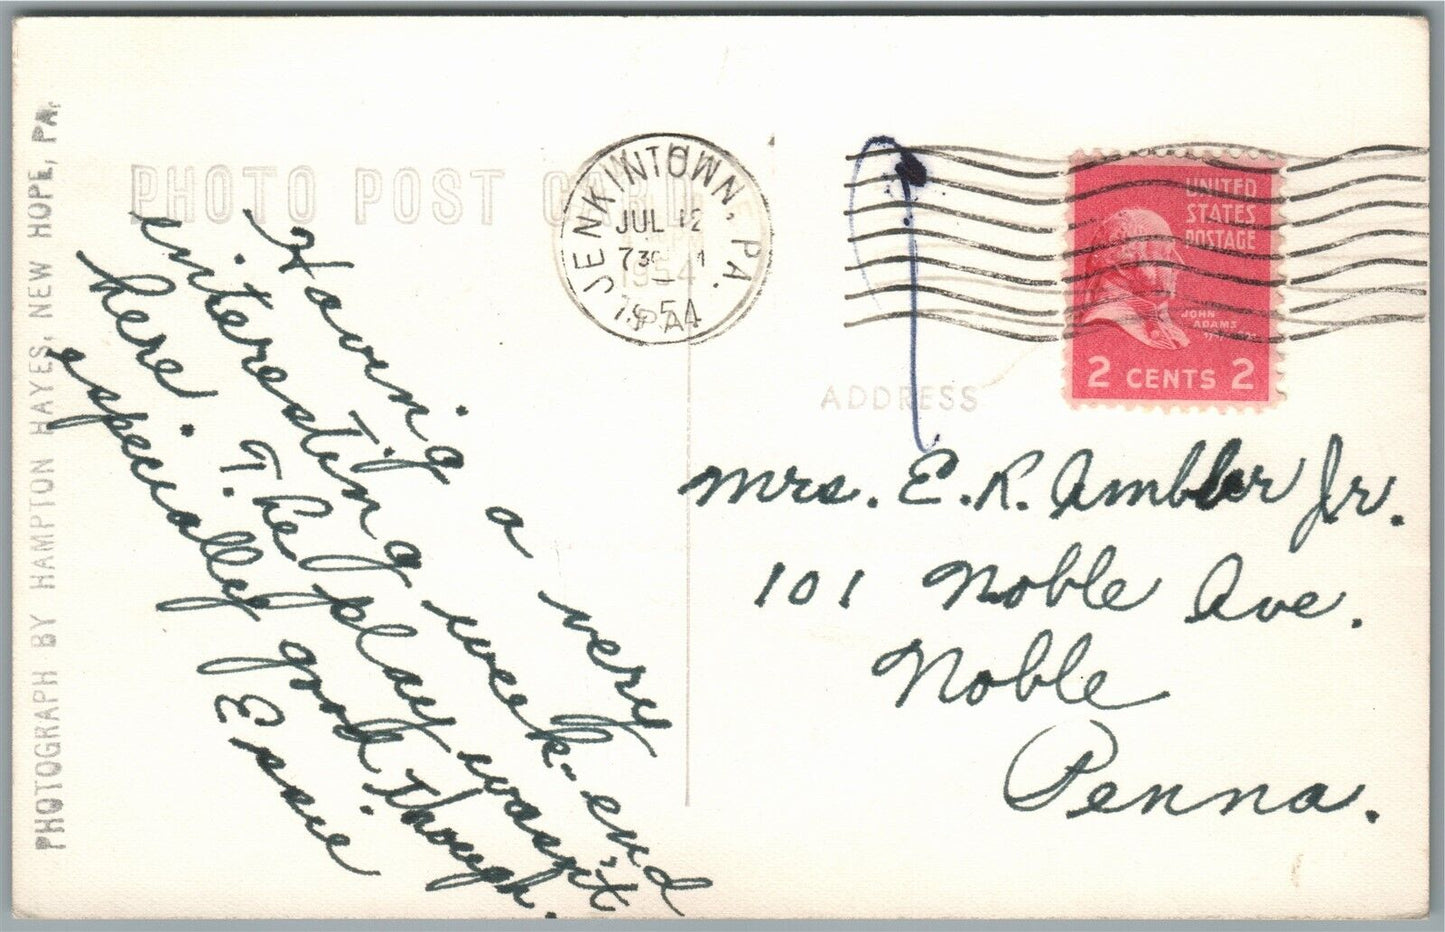 PHOTOGRAPH BY HAMPTON HAYES, NEW HOPE, PA.
PHOTO POST CARD
Having a very
interesting week-end
here. The play wasn't
especially good, though.
Essie
JENKINTOWN, PA.
JUL 12
1954
UNITED
STATES
POSTAGE
JOHN
ADAMS
2 CENTS 2
ADDRESS
Mrs. E. R. Ambler Jr.
101 Noble Ave.
Noble
Penna.